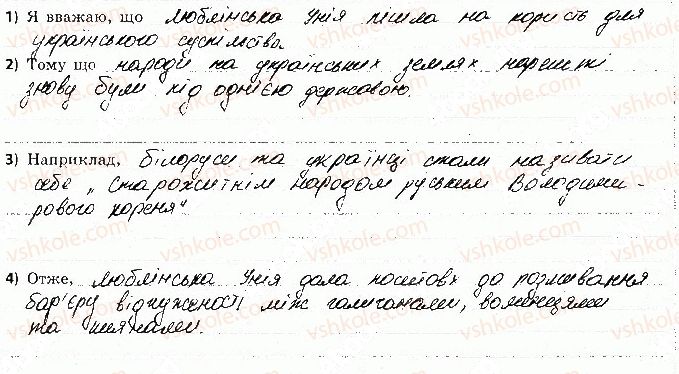 1) Я вважаю, що Люблінська Унія пішла на користь для
українського суспільства.
2) Тому що народи на українських землях нарешті
знову були під однією державою.
3) Наприклад, білоруси та українці стали називати
себе „Старожитнім народом руським Володими-
рового кореня"
4) Отже, Люблінська Унія дала поштовх до розмивання
бар'єру відчуженості між галичанами, волинцями
та